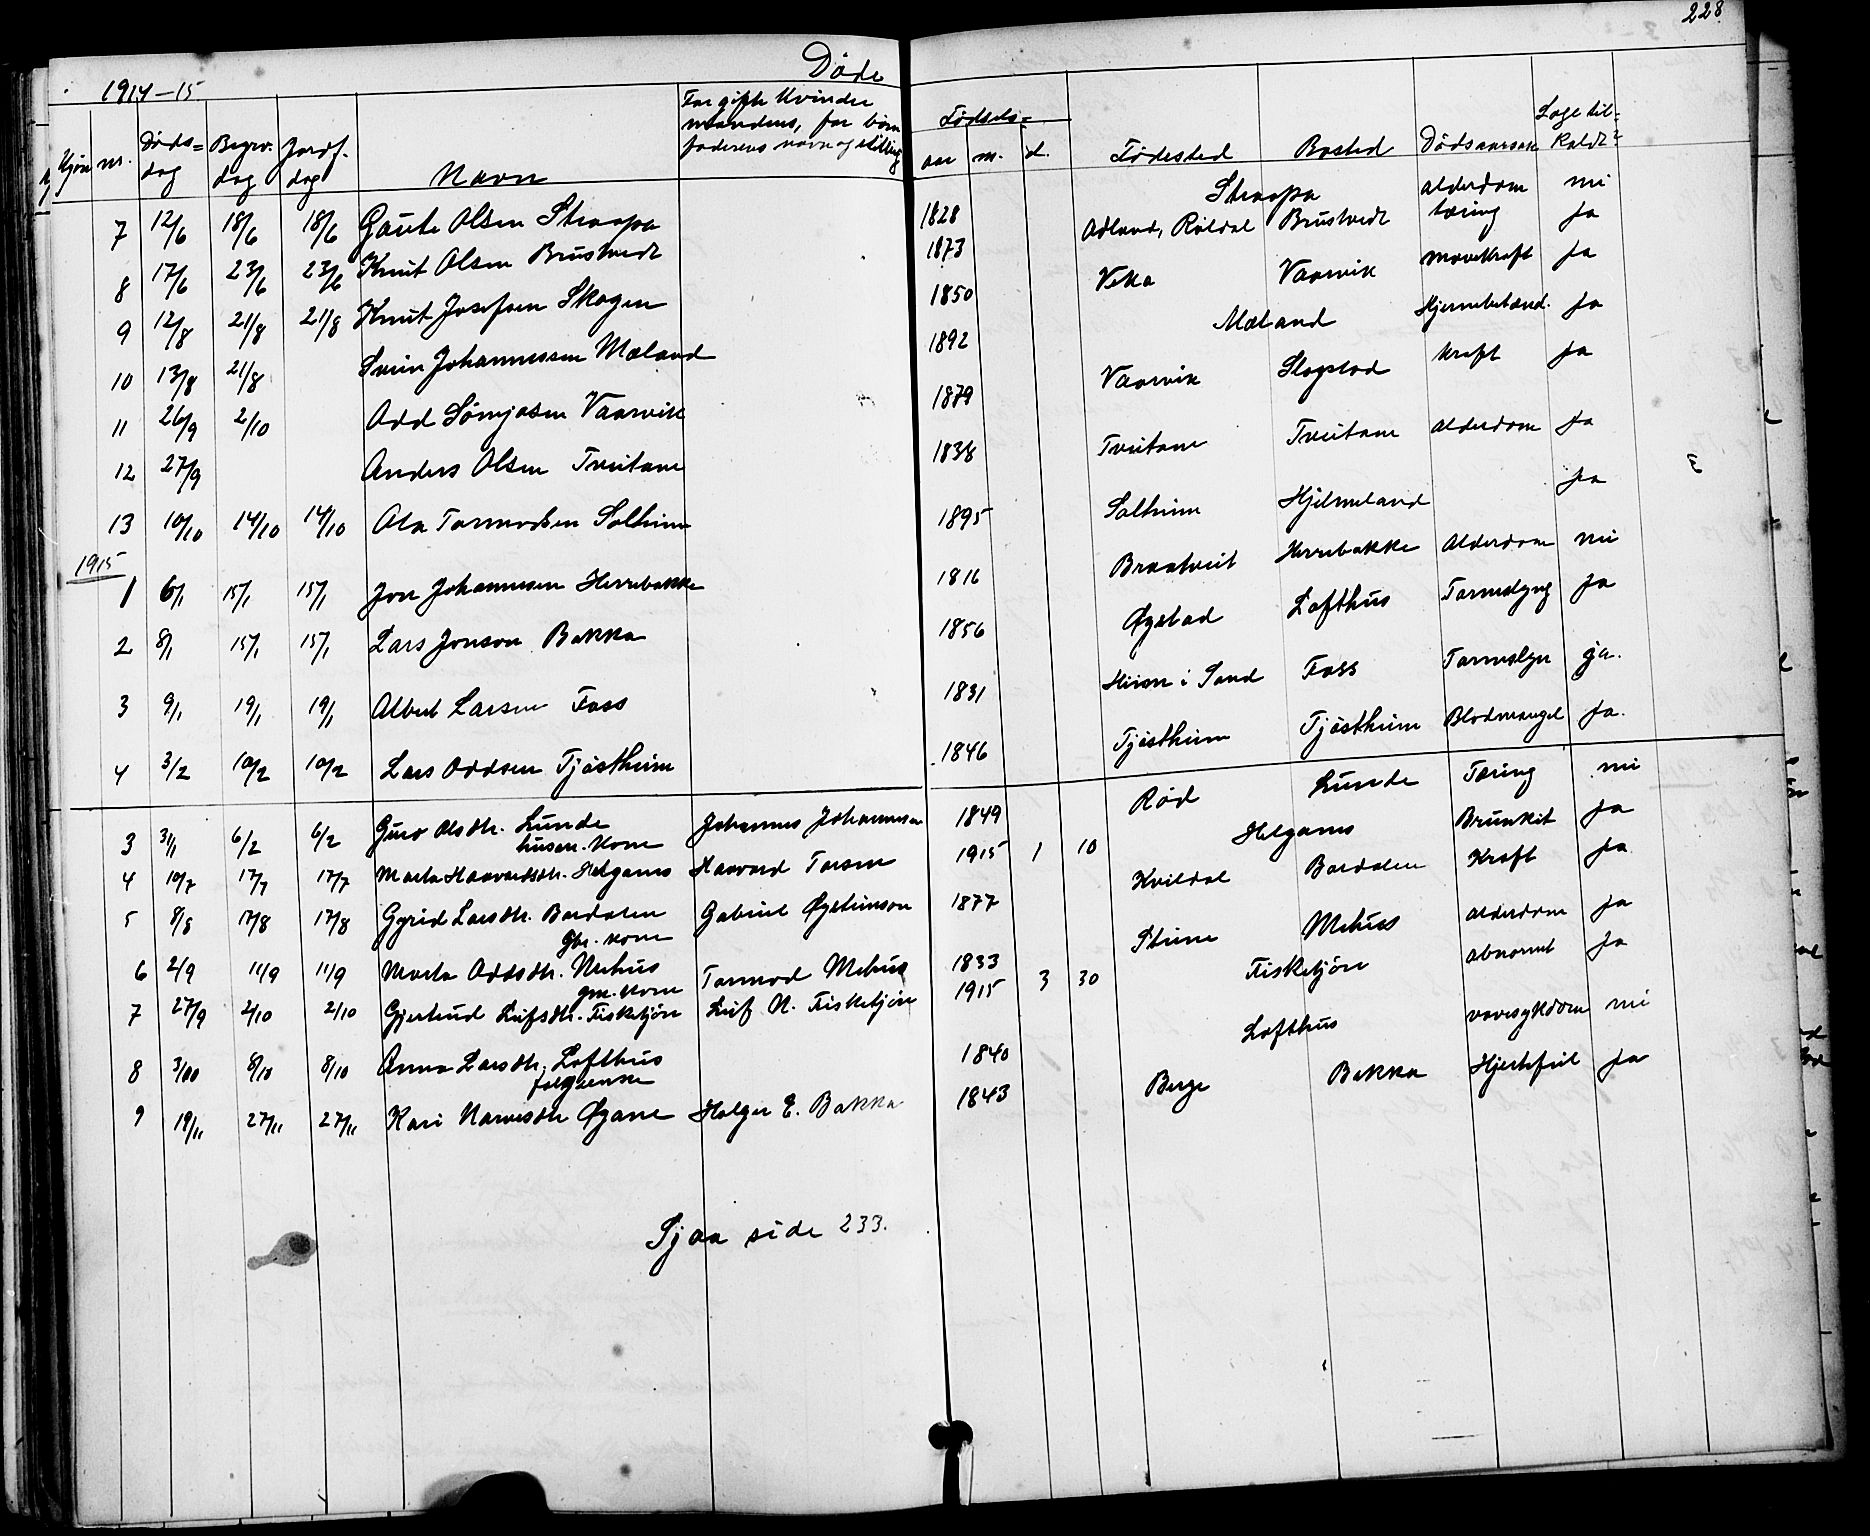 228
Døde
1914-15
Kjøn nr. Døds= dag Begrv. dag Jordf. dag Navn For gifte Kvinder mandens, for børn faderens navn og stilling Fødsels= aar m. d. Fødested Bosted Dødsaarsak Læge til= kaldt?
7 12/6 18/6 18/6 Gaute Olsen Straapa 1828 Straapa alderdom nei
8 17/6 23/6 23/6 Knut Olsen Brustvedt 1873 Adland, Røldal Brustvedt tæring ja
9 12/8 21/8 21/8 Knut Josefsen Skogen 1850 Veka Vaarvik mavekræft ja
10 13/8 21/8 Svein Johannessen Mæland 1892 Mæland Hjernebetænd. ja
11 26/9 2/10 Odd Sømjosen Vaarvik 1879 Vaarvik Slogstad kræft ja
12 27/9 Anders Olsen Tveitane 1838 Tveitane Tveitane alderdom ja
13 10/10 14/10 14/10 Ola Tormodsen Solheim 1895 Solheim Hjelmeland ja
1915
1 6/1 15/1 15/1 Jon Johannesen Herrebakke 1816 Braatveit Herrebakke Alderdom nei
2 8/1 15/1 15/1 Lars Jonson Bakka 1856 Øystad Lofthus Tarmslyng ja
3 9/1 19/1 19/1 Albert Larsen Foss 1831 i Sand Foss Tarmslyn ja.
4 3/2 10/2 10/2 Lars Oddsen Tjøstheim 1846 Tjøstheim Tjøstheim Blodmangel ja.
3 31/1 6/2 6/2 Guro Olsdtr. Lunde Johannes Johannesen 1849 Rød Lunde Tæring nei
husm. kone
4 10/7 17/7 17/7 Marta Haavardsdtr. Helganes Haavard Torsen 1915 1 10 Helganes Brunkit ja
5 8/8 17/8 17/8 Gyrid Larsdtr. Bordalen Gabriel Øysteinson 1877 Kvildal Bordalen Kræft ja
gbr. kone
6 2/9 11/9 11/9 Marta Oddsdtr. Mehus Tormod Mehus 1833 Steine Mehus alderdom ja
gm. kone
7 27/9 2/10 2/10 Gjertrud Leifsdtr. Fisketjøn Leif N. Fisketjøn 1915 3 30 Fisketjøn abnormt ja
8 3/10 8/10 8/10 Anna Larsdtr. Lofthus 1840 Lofthus vavesykdom nei
9 19/11 27/11 27/11 Kari Narvesdtr Øgane Holger E. Bakka 1843 Berge Bakka Hjertefeil ja
Sjaa side 233.